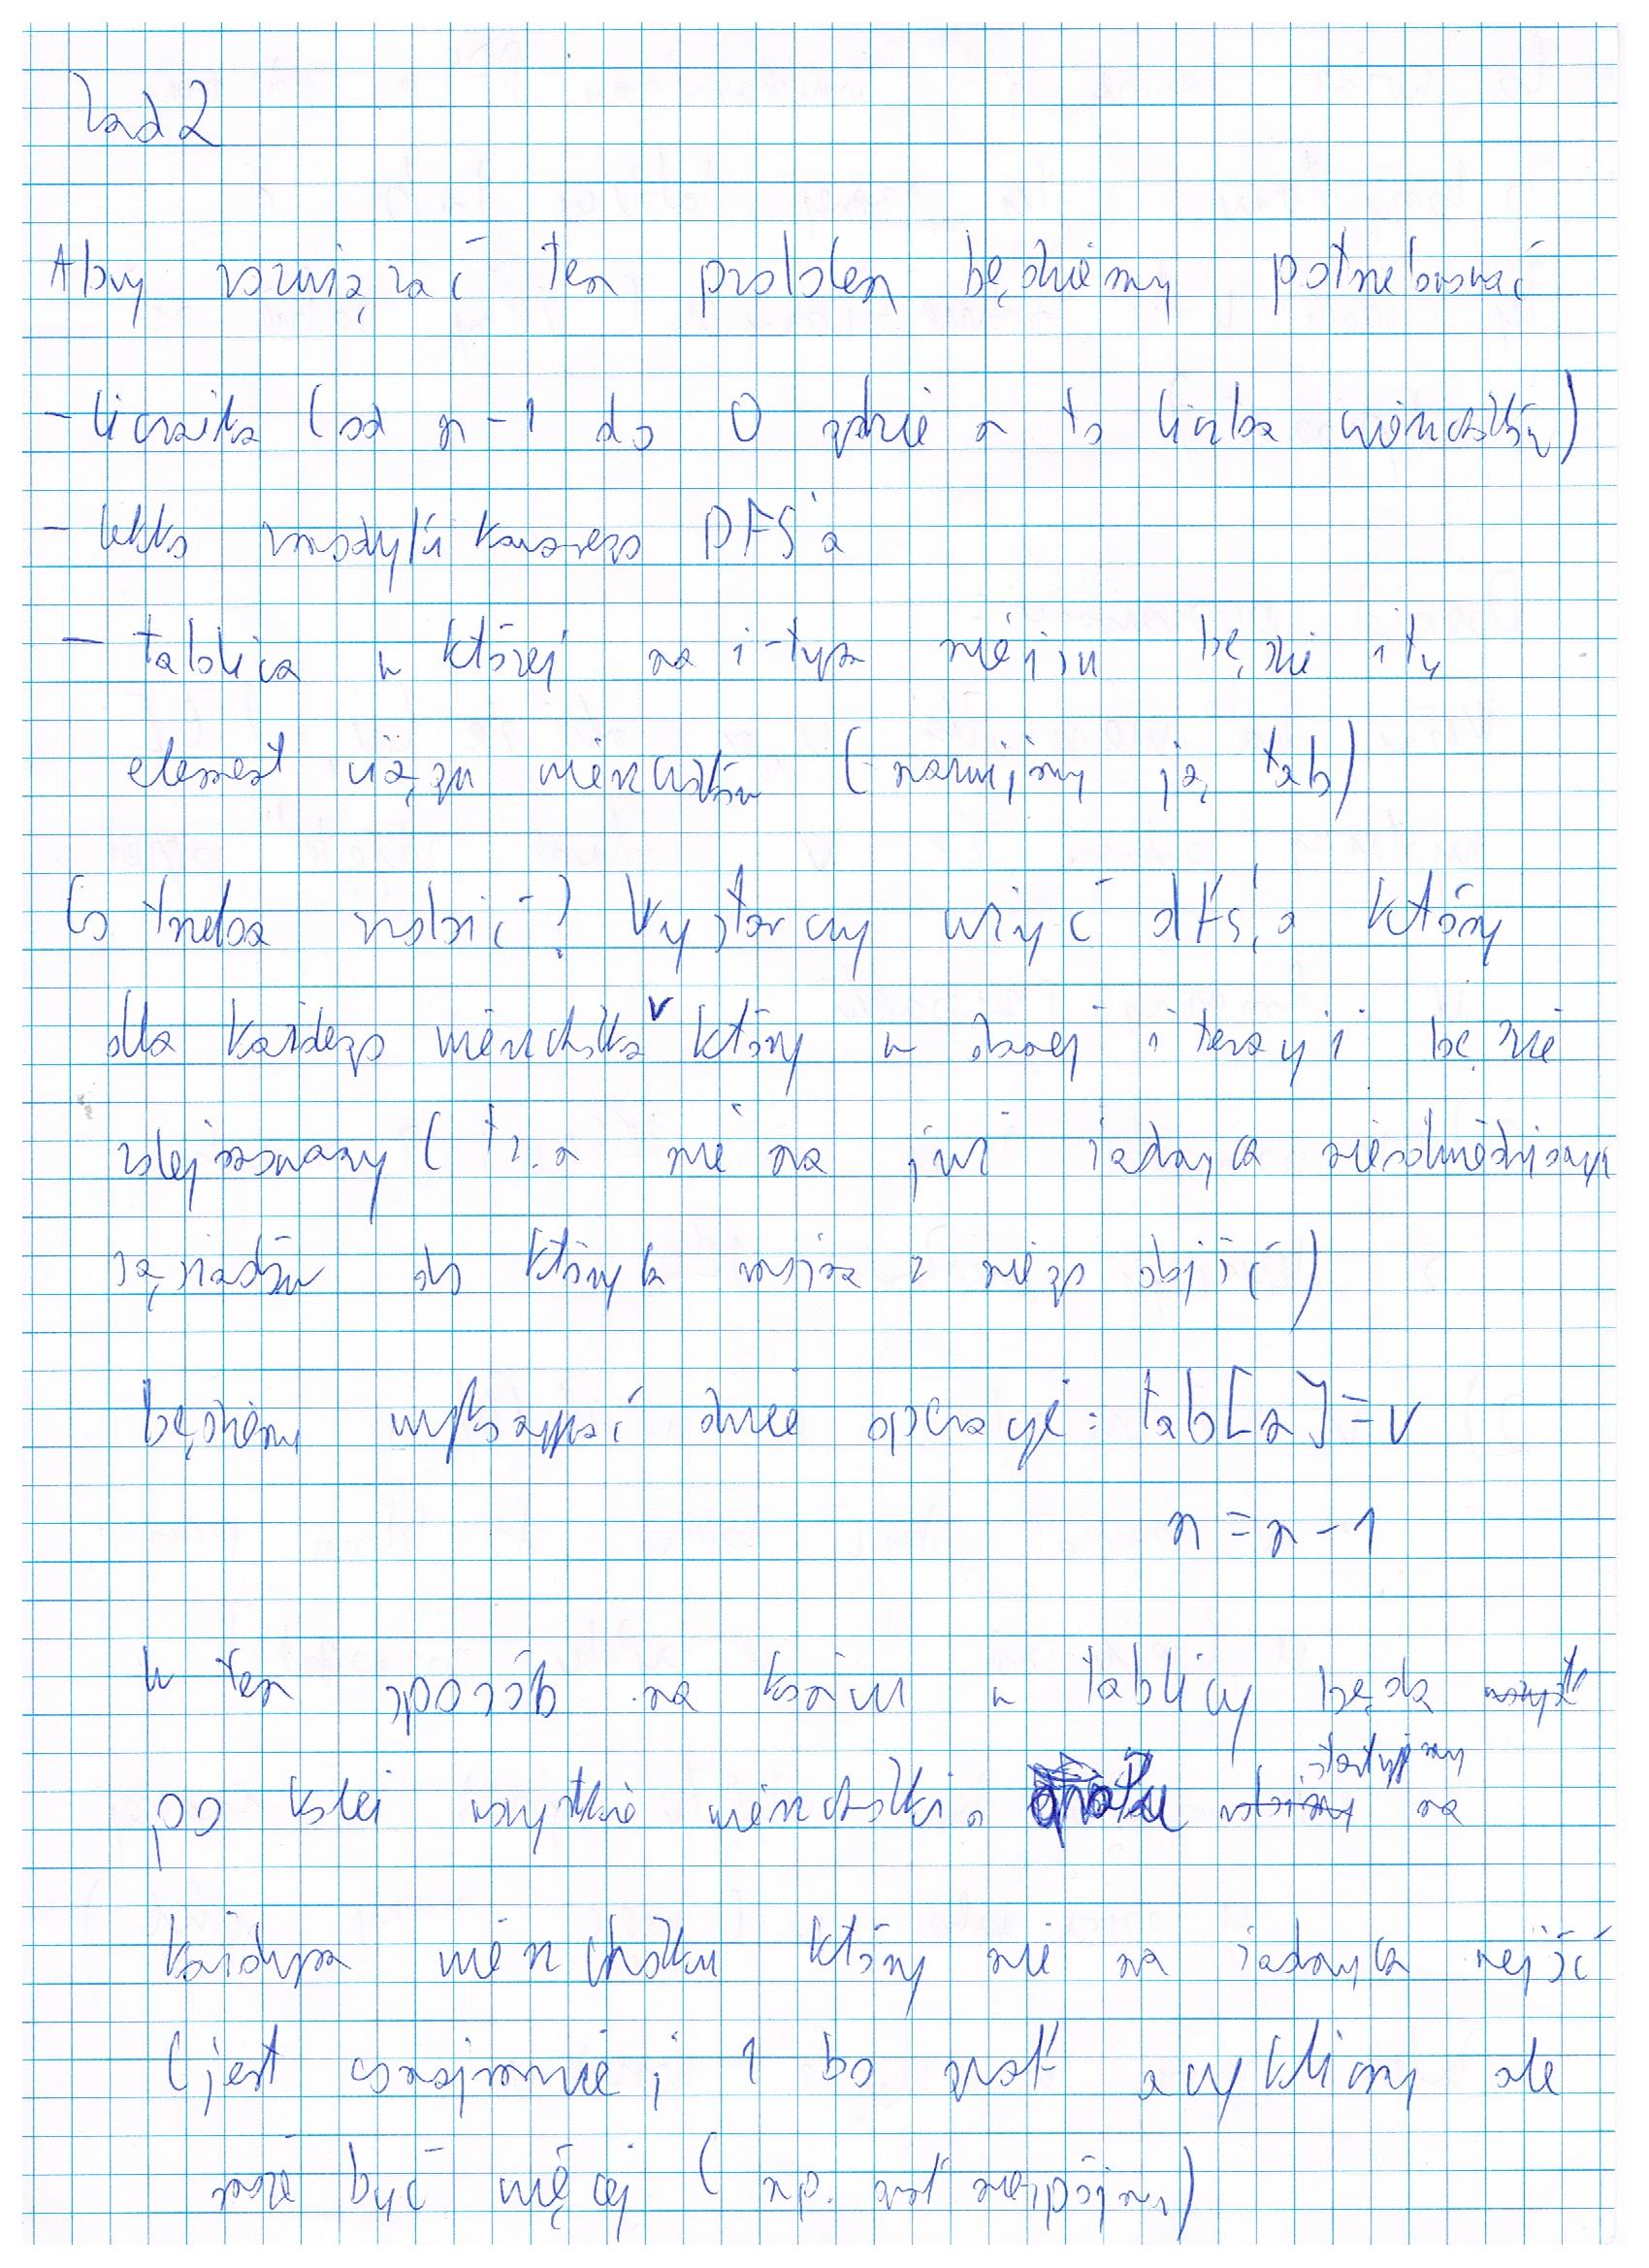 Zad 2
Aby rozwiązać ten problem będziemy potrzebować
- licznika (od n-1 do 0 gdzie n to liczba wierzchołków)
- lekko zmodyfikowanego DFS'a
- tablica w której na i-tym miejscu będzie i ty
element ciągu wierzchołków (nazwijmy ją tab)
Co trzeba zrobić? Wystarczy użyć dfs'a który
dla każdego wierzchołka v który w danej iteracji będzie
zdejmowany (tzn nie ma już żadnych nieodwiedzonych
sąsiadów do których można z niego dojść)
będziemy wykonywać dwie operacje: tab[n]=v
n=n-1
W ten sposób na końcu w tablicy będą
po kolei wszystkie wierzchołki. startujemy na
każdym wierzchołku który nie ma żadnych wejść
(jest conajmniej 1 bo graf acykliczny ale
może być więcej (np. graf niespójny)